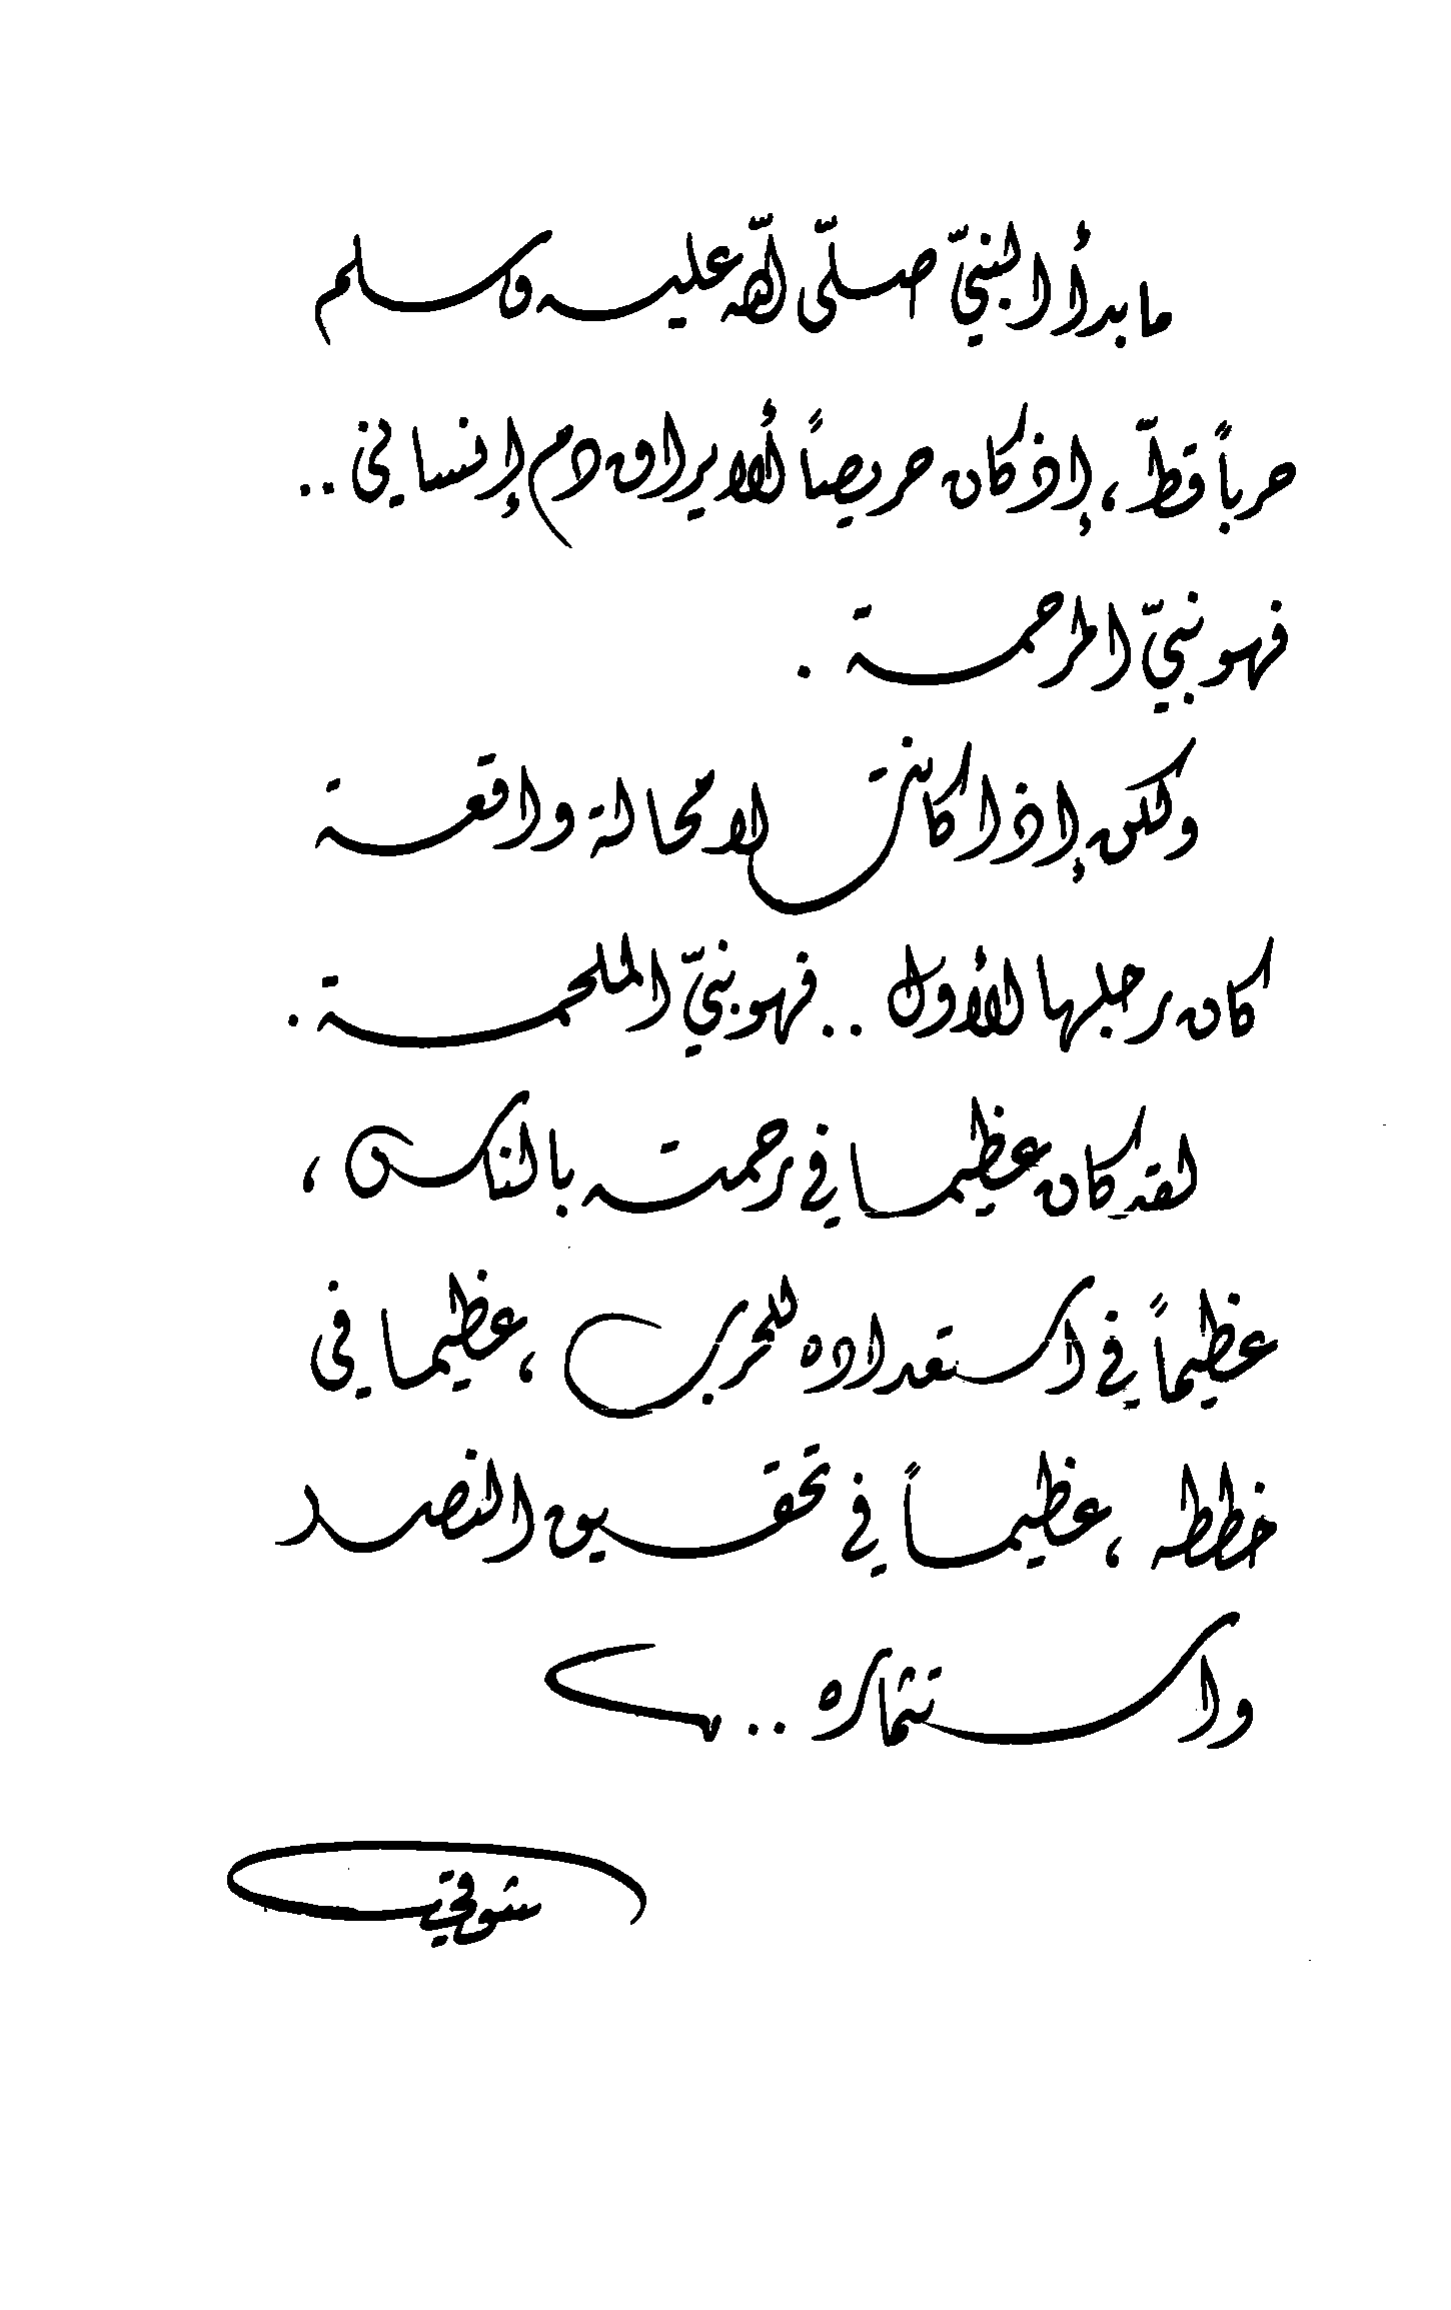 ما بدأ النبيّ صلّى اللّه عليه وسلم
حرباً قطّ، إذ كان حريصاً ألا يراق دم إنساني..
فهو نبيّ المرحمة .
ولكن إذا كانت لا محالة واقعة
كان رجلها الأول .. فهو نبيّ الملحمة .
لقد كان عظيما في رحمته بالناس ،
عظيماً في استعداده للحرب ، عظيما في
خططه ، عظيماً في تحقيق النصر
واستثماره ..
شوقي